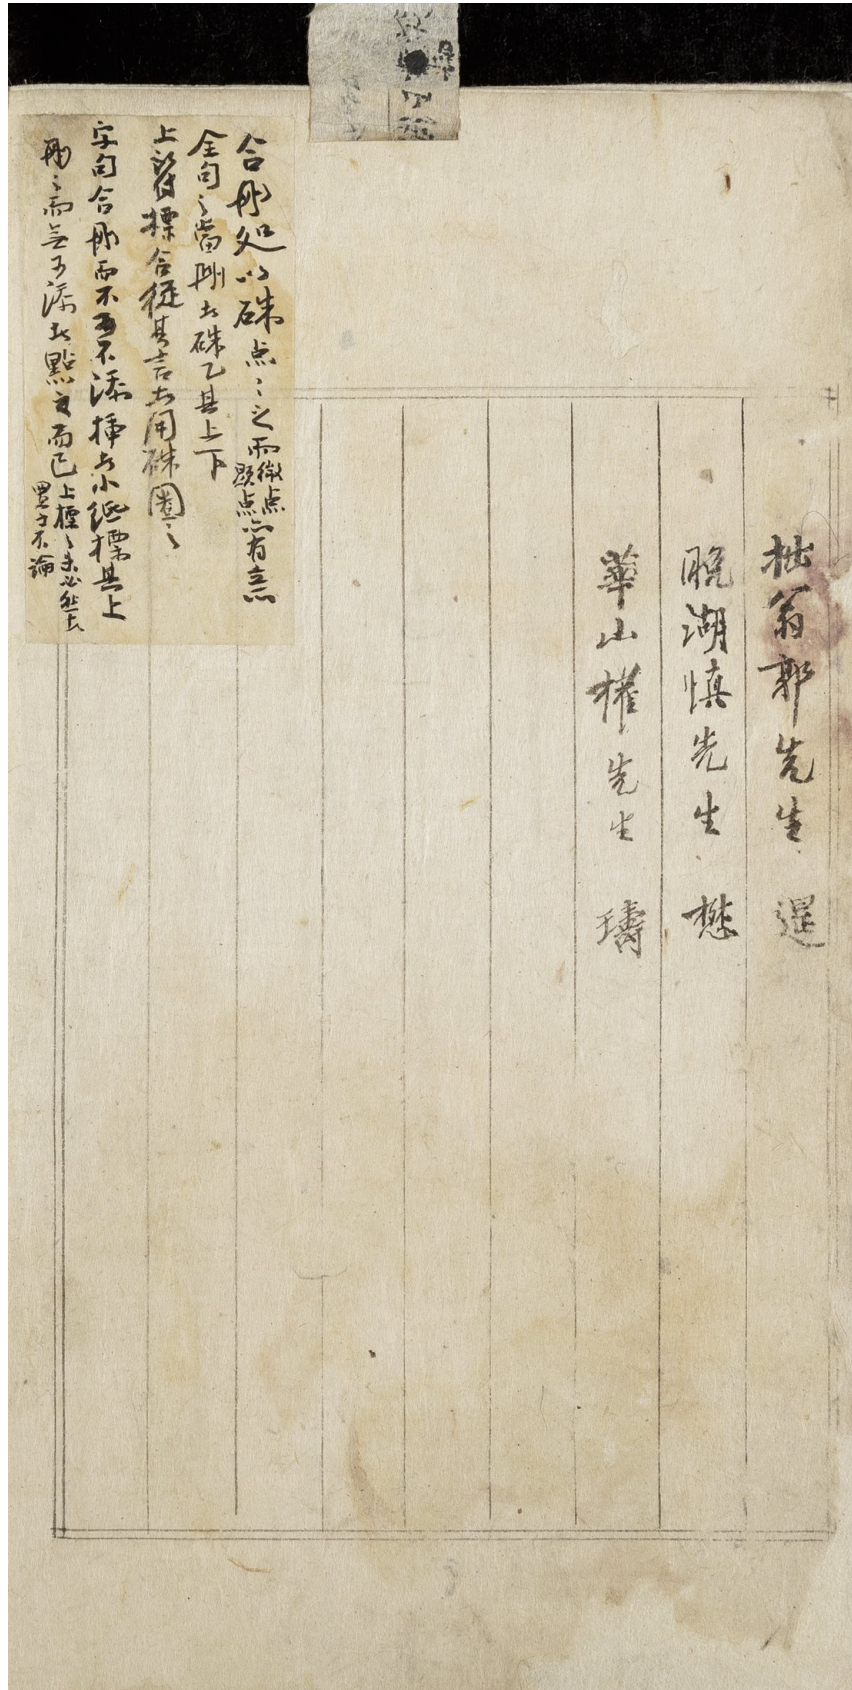 拙翁郭先生 遅
晩湖慎先生 懋
華山權先生 璹
合刪処以硃点〻之而微点
顕点亦有意
全句之當刪者硃乙其上下
上旧標合従其言者用硃圈之
字句合刪而不可不添挿者小紙標其上
刪之而無可添者點之而已
上標之未必然者
置之不論